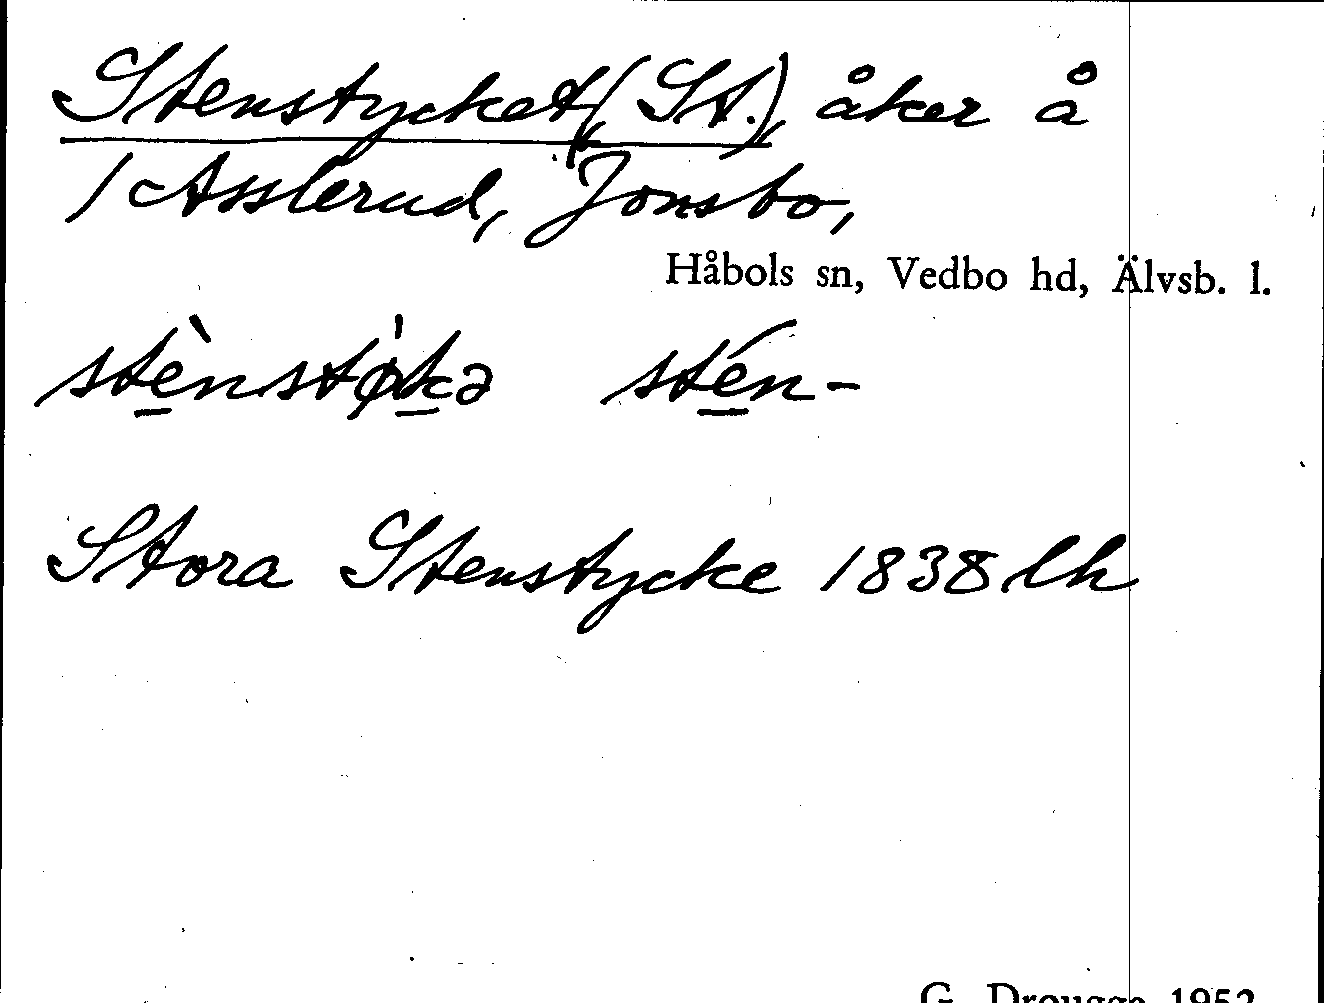 Stenstycket (St.), åker å
1 Asslerud, Jonsbo,
Håbols sn, Vedbo hd, Älvsb. l.
stènstø̀kə stén-
Stora Stenstycke 1838 lh
G. Drougge 1952